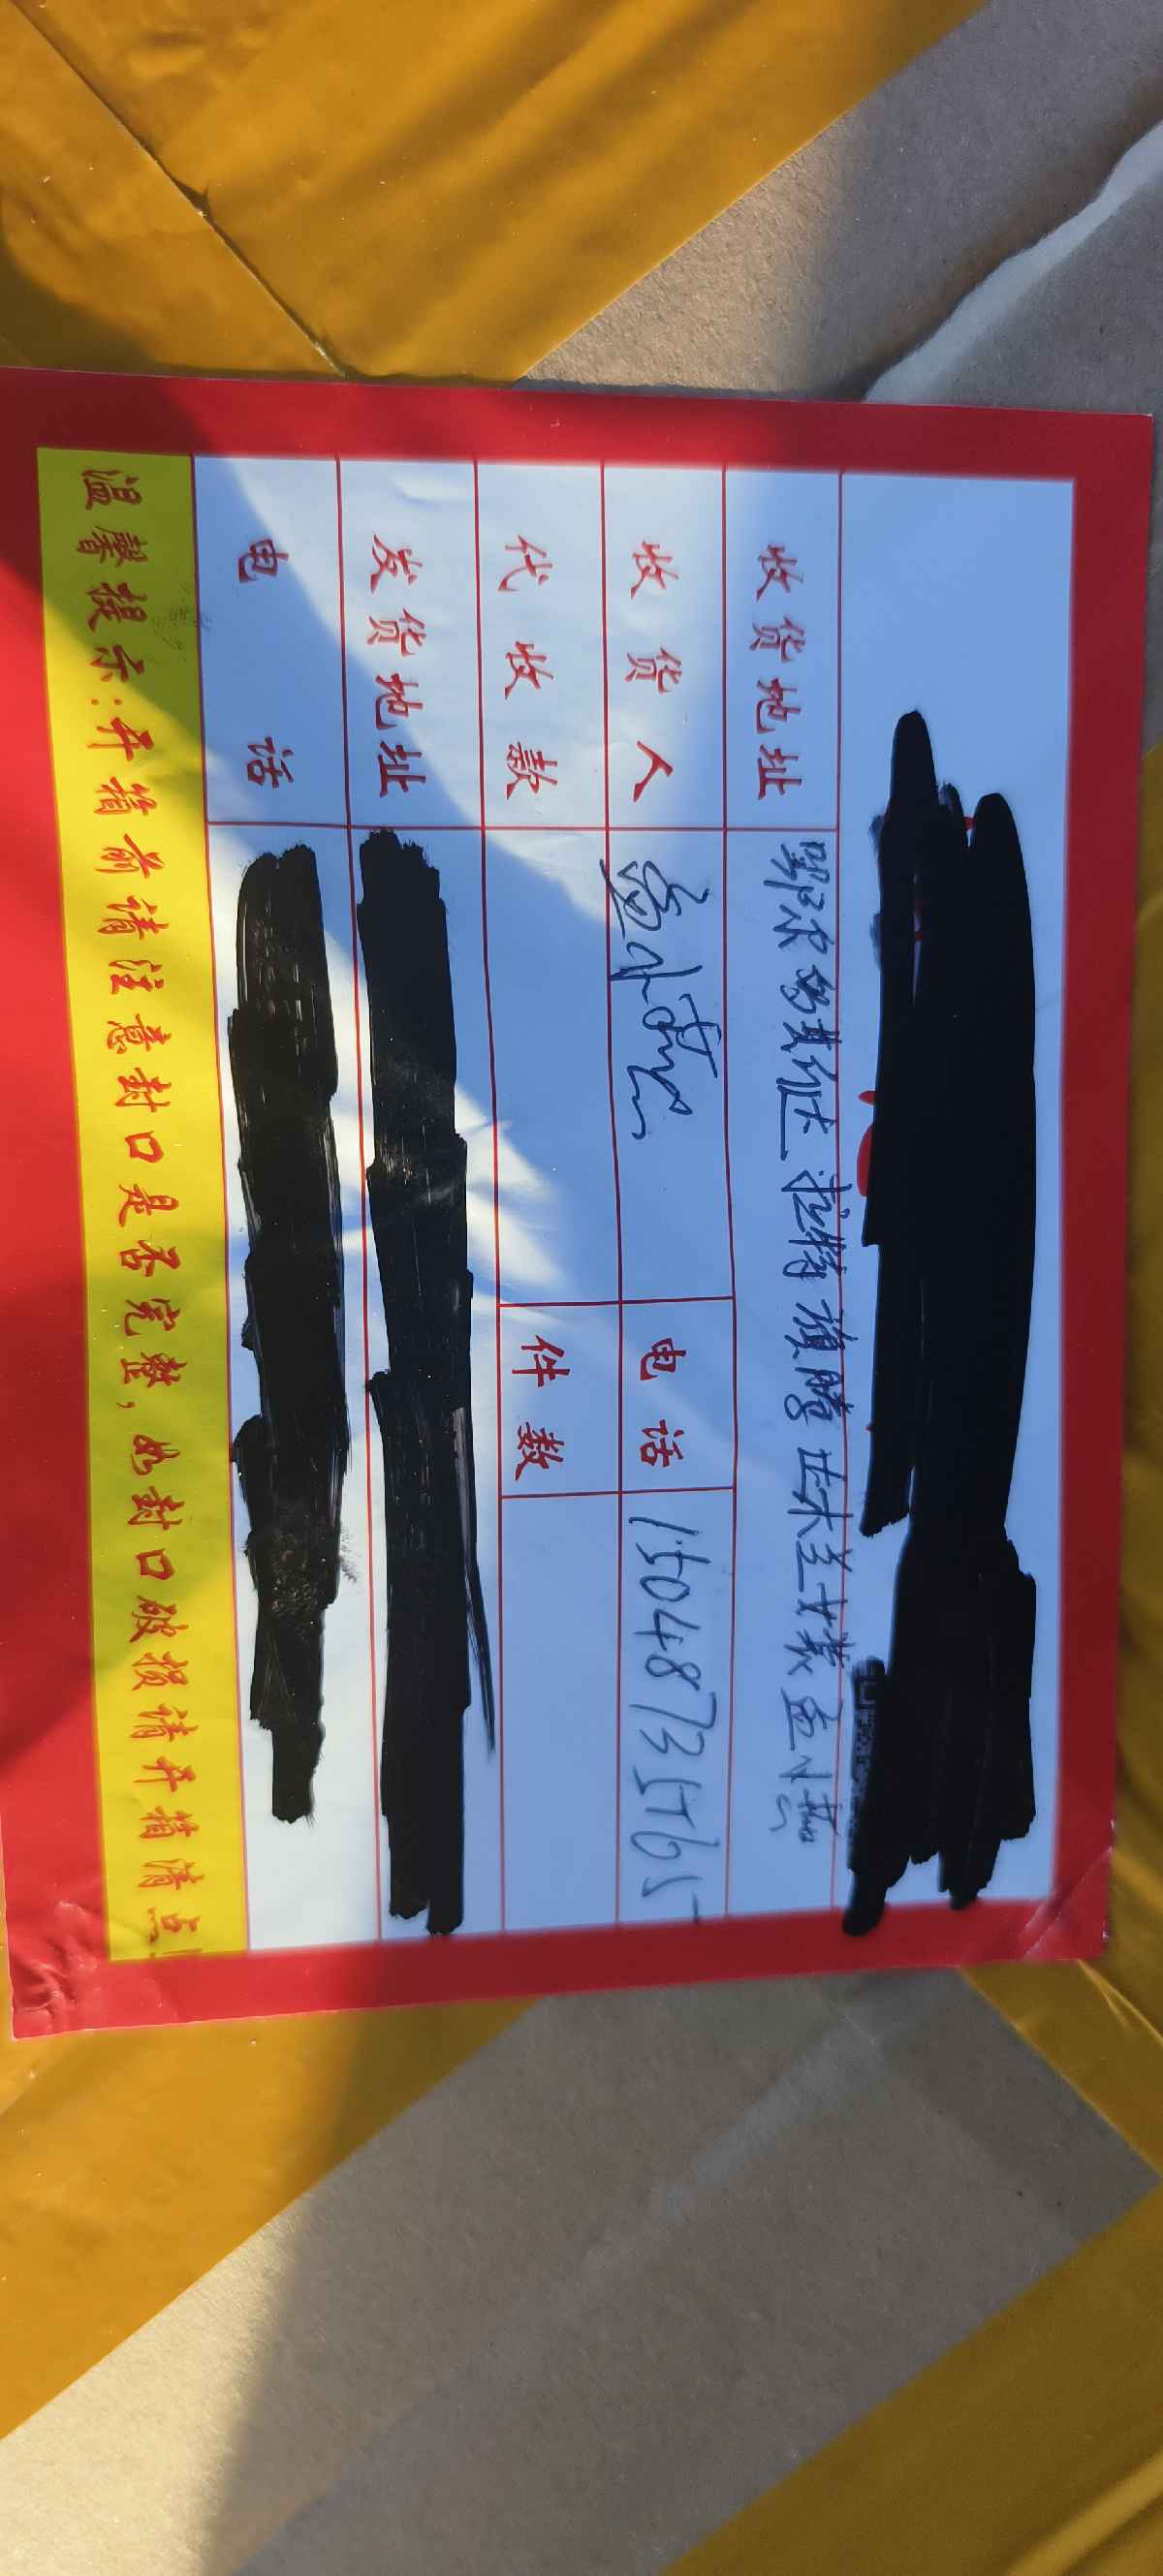 收货地址 鄂尔多斯市达拉特旗腾达木兰女装孟小燕
收货人 孟小燕 电话 15048735765
代收款 件数
发货地址
电话
温馨提示:开箱前请注意封口是否完整,如封口破损请开箱清点!